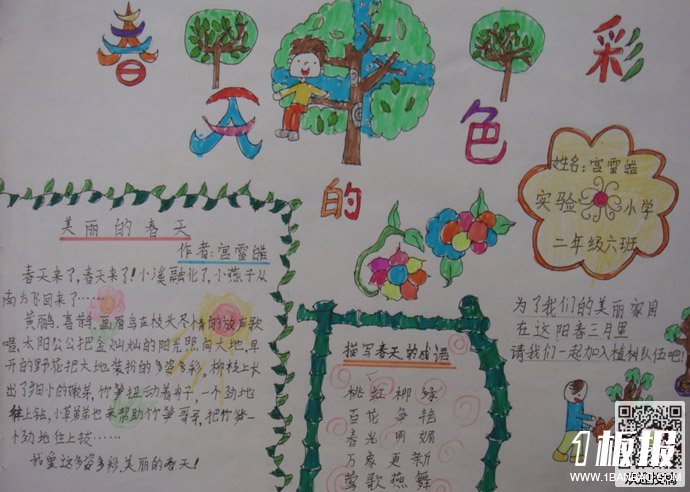 春天的色彩
姓名:宫雪皓
实验小学
二年级六班
美丽的春天
作者:宫雪皓
春天来了,春天来了!小溪融化了,小燕子从
南方飞回来了……
黄鹂、喜鹊、画眉鸟声枝头尽情的放声歌
唱,太阳公公把金灿灿的阳光照向大地,早
开的野花把大地装扮的多姿多彩,柳枝上长
出了细小的嫩芽,竹笋扭动着身子,一个劲地
往上钻,小草弟弟也来帮助竹笋哥哥,把竹笋一
个劲地往上拔……
我爱这多姿多彩,美丽的春天!
描写春天的成语
桃红柳绿
百花争艳
春光明媚
万象更新
莺歌燕舞
为了我们的美丽家园
在这阳春三月里
请我们一起加入植树队伍吧!
1板报
WWW.1BANBAO.COM